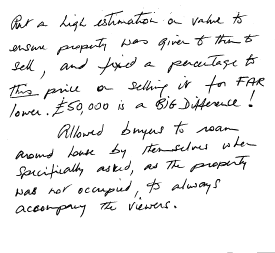 Put a high estimation on value to
ensure property was given to them to
sell, and fixed a percentage to
this price on selling it for FAR
lower. £50,000 is a BIG Difference!
Allowed buyers to roam
around house by themselves when
specifically asked, as the property
was not occupied, to always
accompany the viewers.